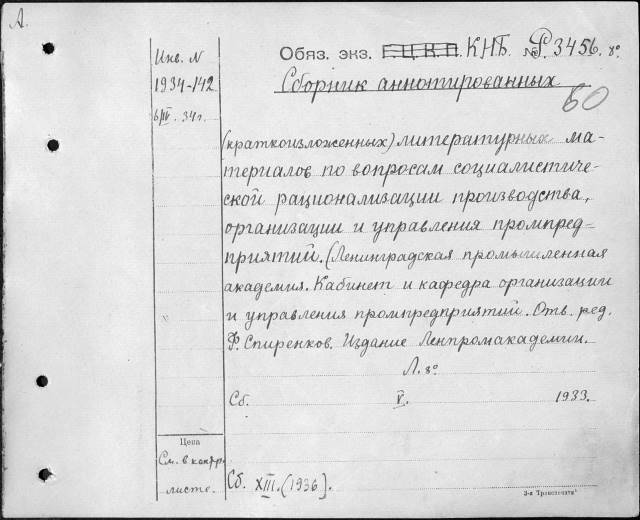 А.
Инв. N
1934-142
6/IV. 34г.
Обяз. экз. Г.Ц.К.П. КНБ. № Р.3456. 8°.
Сборник аннотированных
60
(краткоизложенных) литературных ма-
териалов по вопросам социалистиче-
ской рационализации производства,
организации и управления промпред-
приятий. (Ленинградская промышленная
академия. Кабинет и кафедра организации
и управления промпредприятий. Отв. ред.
Ф. Спиренков. Издание Ленпромакадемии.
Л. 8°
Сб. V. 1933.
Цена
См. в контр.
листе.
Сб. XIII. (1936).
3-я "Транспечати"